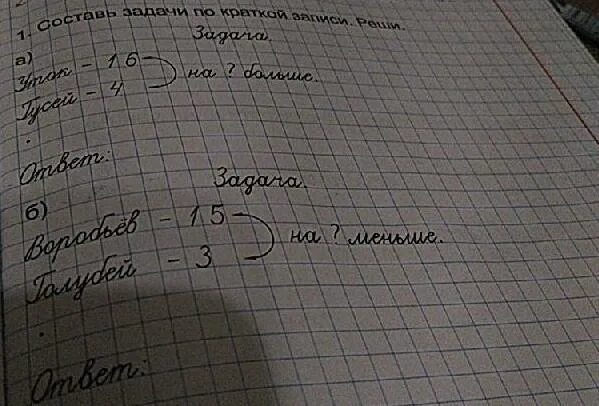 1. Составь задачи по краткой записи. Реши.
Задача.
а)
Уток - 16
на ? больше.
Гусей - 4
.
Ответ:
Задача.
б)
Воробьёв - 15
на ? меньше.
Голубей - 3
.
Ответ: